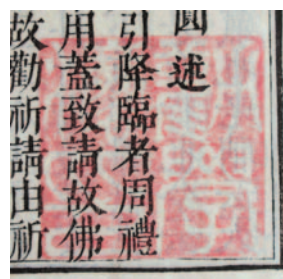 圓述
引降臨者周禮
用蓋致請故佛
故勸祈請由祈